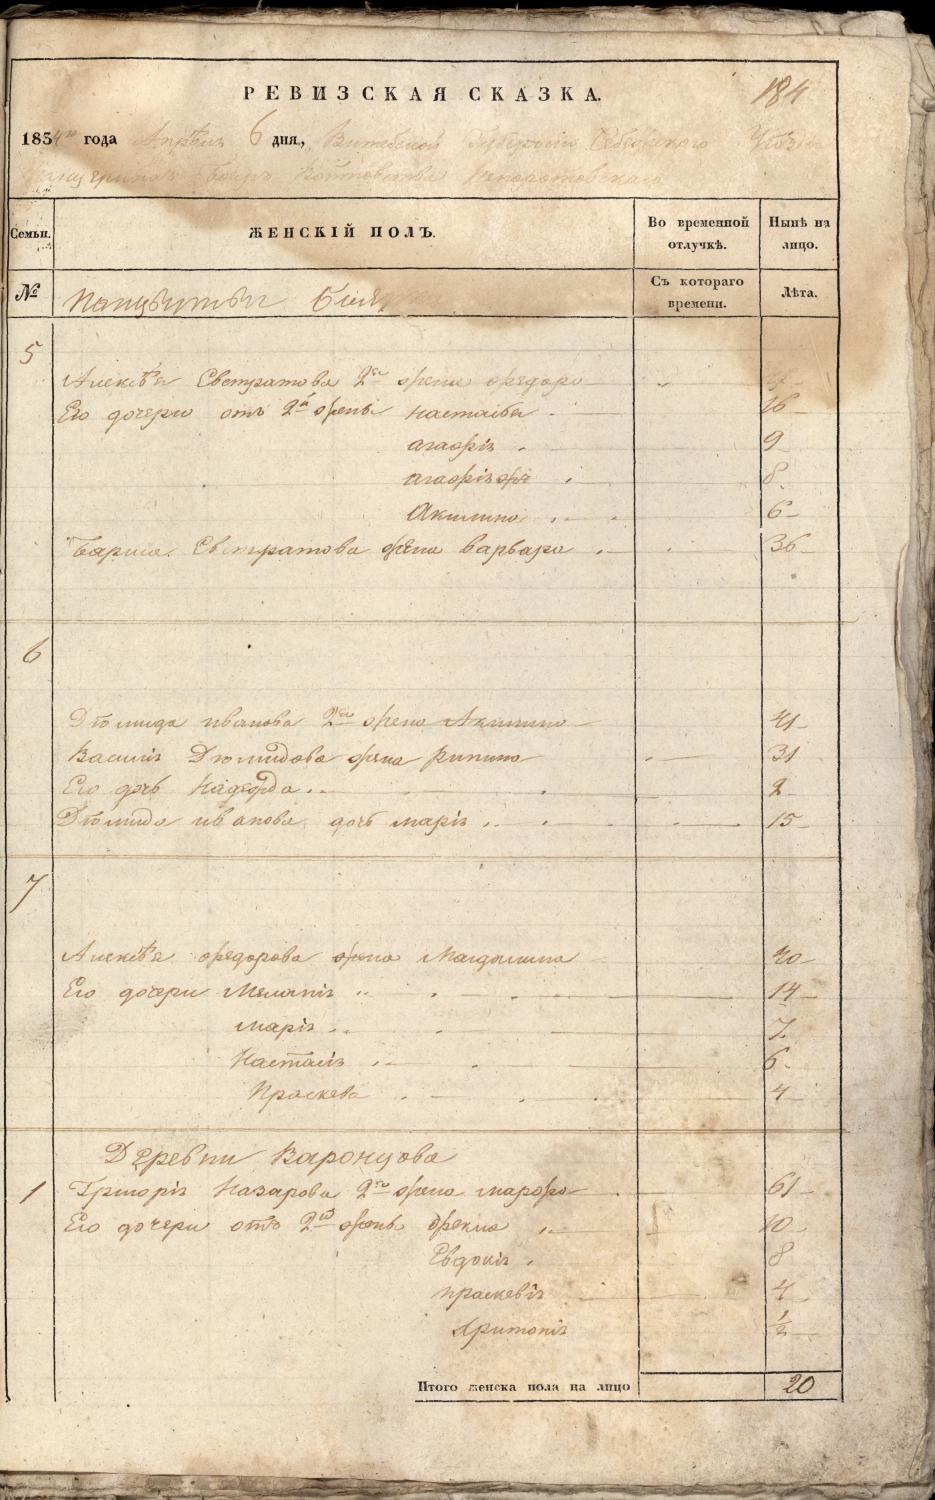 РЕВИЗСКАЯ СКАЗКА.
184
1854 года Апреля 6 дня, Витебской Губернии Себежскаго Уезда
ЖЕНСКІЙ ПОЛЪ.
Во временной отлучкѣ.
Нынѣ на лицо.
Семьи.
№
Съ котораго времени.
Лѣта.
5
Алексѣя Евстратова 2ая жена Федора
Его дочери отъ 2й жены Настасія 16
Агафія 9
8
Акилина 6
Бариса Евстратова жена Варвара 36
6
Діомида Иванова 2ая жена Акилина 41
Василія Діомидова жена 31
Его дочь 2
Діомида Иванова дочь Марія 15
7
Алексѣя Федорова жена Магдалина 40
Его дочери Меланія 14
Марія 7
Настасія 6
Праскева 4
Деревни Варонцова
1 Григорія Назарова 2ая жена Марфа 61
Его дочери отъ 2й жены Фекла 10
Евдокія 8
Праскевія 4
1/2
Итого женска пола на лицо 20